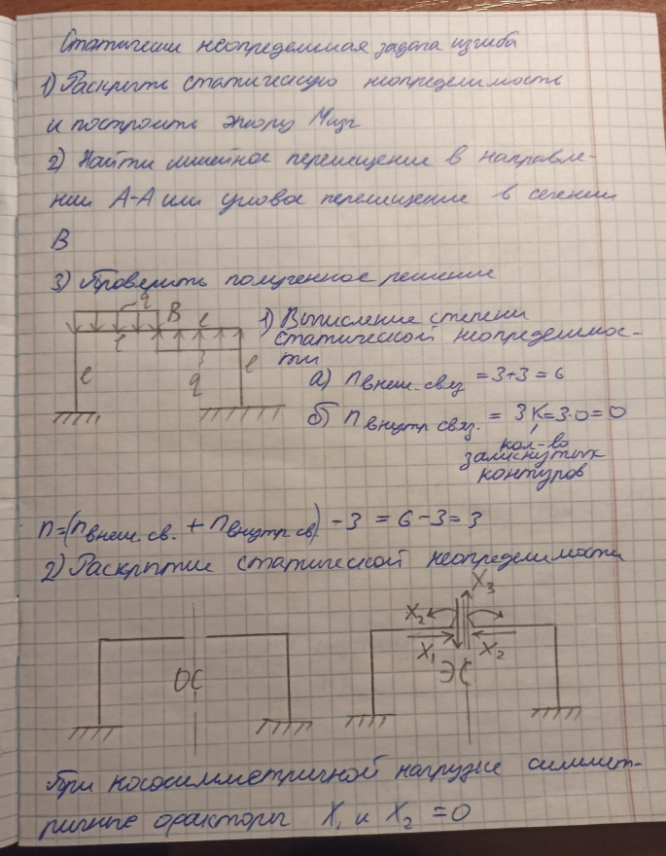 Статически неопределимая задача изгиба
1) Раскрыть статическую неопределимость
и построить эпюру Mизг
2) Найти линейное перемещение в направле-
нии А-А или угловое перемещение в сечении
В
3) Проверить полученное решение
q
B
l
l
l
l
q
1) Вычисление степени
статической неопределимос-
ти
а) n внеш. связ = 3+3 = 6
б) n внутр связ. = 3К=3·0=0
кол-во
замкнутых
контуров
n=(n внеш. св. + n внутр св.) - 3 = 6-3=3
2) Раскрытие статической неопределимости
ОС
X2
X3
X1
X2
ЭС
При кососимметричной нагрузке симмет-
ричные факторы X1 и X2 = 0